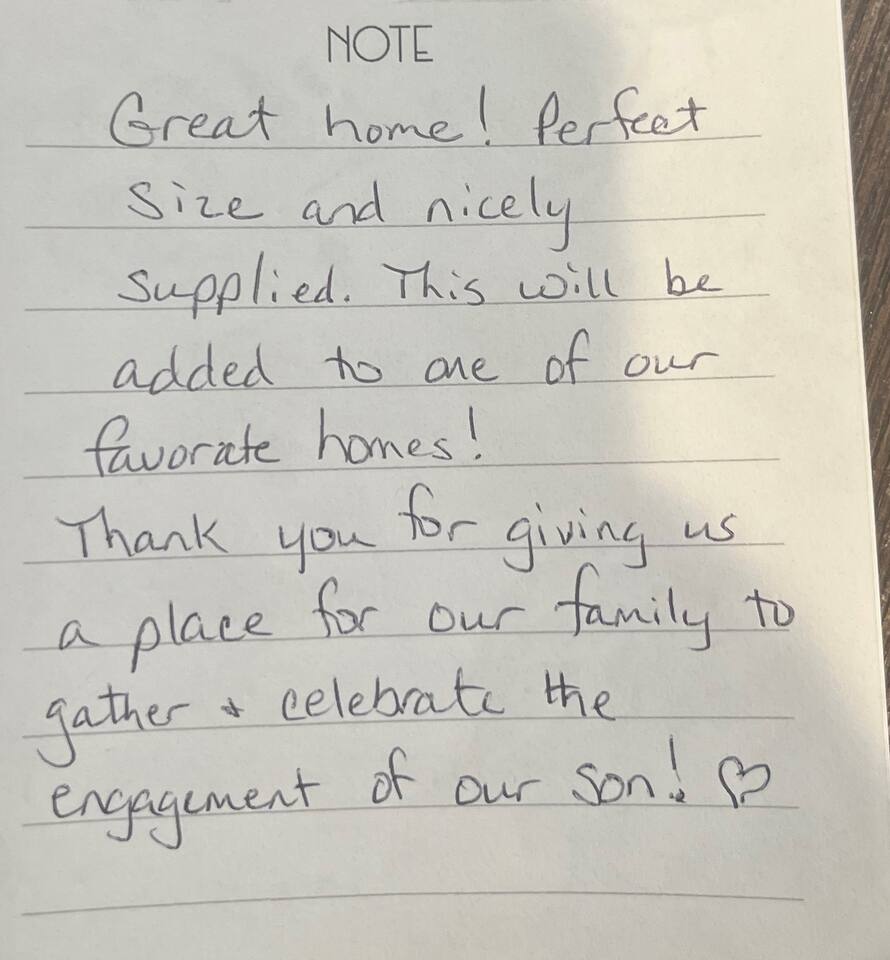 NOTE
Great home! Perfect
size and nicely
supplied. This will be
added to one of our
favorate homes!
Thank you for giving us
a place for our family to
gather & celebrate the
engagement of our son! ♡